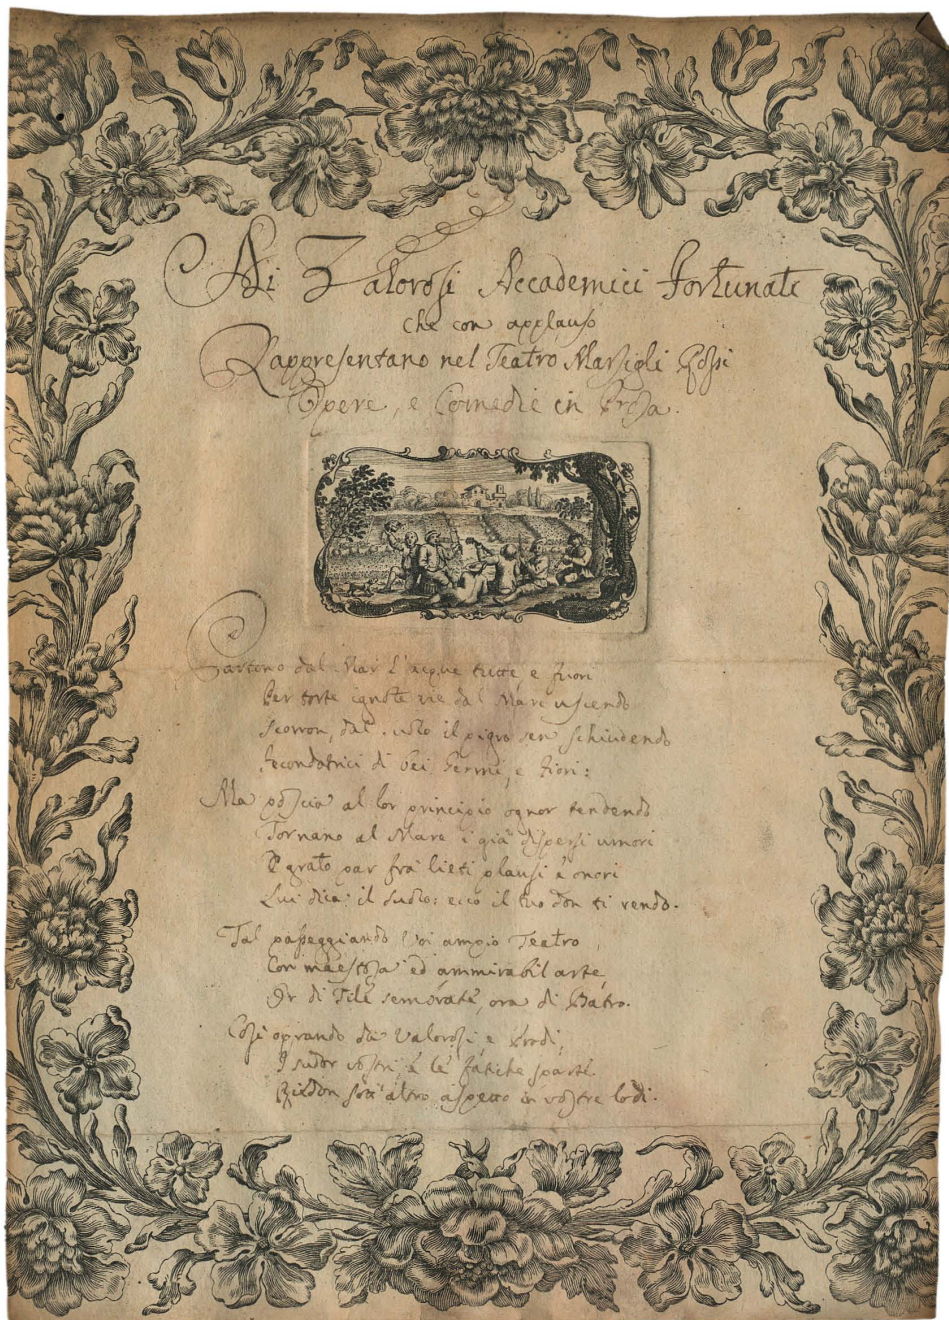 Ai Valorosi Accademici Fortunati
che con applauso
Rappresentano nel Teatro Marsigli Rossi
Opere, e Comedie in Prosa.
Partono dal Mar l'acque tutte, e fuori
Per torte ignote vie dal Mare uscendo
Scorron, dal suolo il pigro sen schiudendo
Fecondatrici di bei Germi, e Fiori:
Ma poscia al lor principio ognor tendendo
Tornano al Mare i già dispersi umori
E grato par frà lieti plausi e onori
Lui dica: il suolo: ecco il tuo don ti rendo.
Tal passeggiando Voi ampio Teatro,
Con maestosa ed ammirabil arte
Or di sembrate, ora di Batro.
Così oprando da Valorosi e Prodi,
I sudor vostri, e le fatiche sparte.
Riedon sott'altro aspetto in vostre lodi.